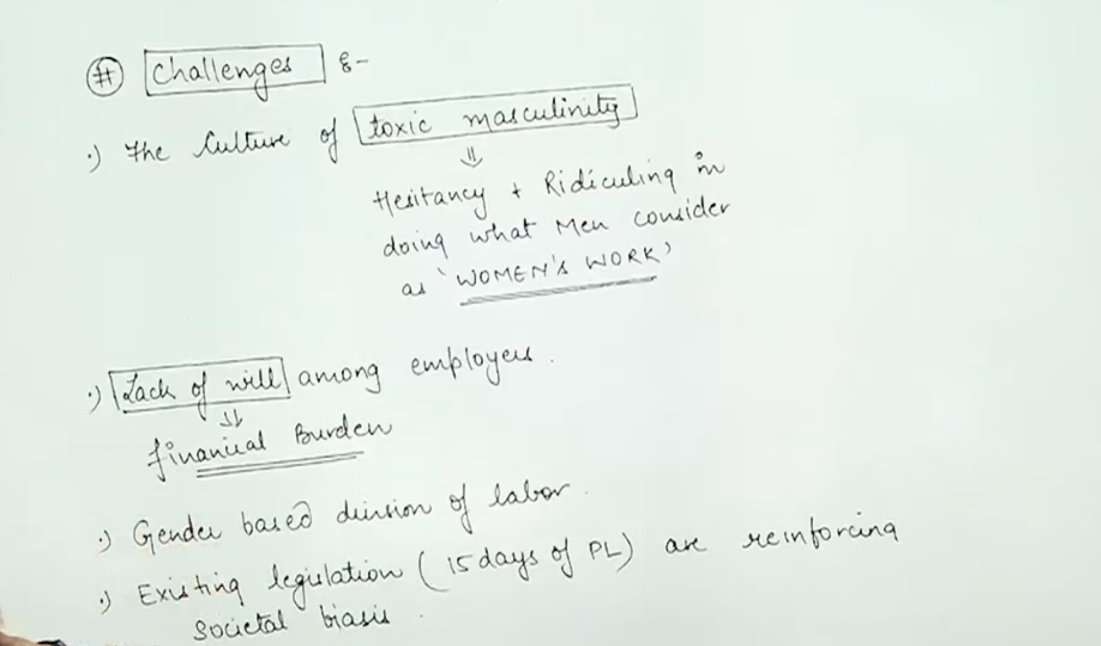 # Challenges :-
·) The Culture of toxic masculinity
⇓
Hesitancy + Ridiculing in
doing what Men consider
as 'WOMEN'S WORK'
·) Lack of will among employers.
⇓
financial Burden
·) Gender based division of labor.
·) Existing legislation (15 days of PL) are reinforcing
societal biasis.